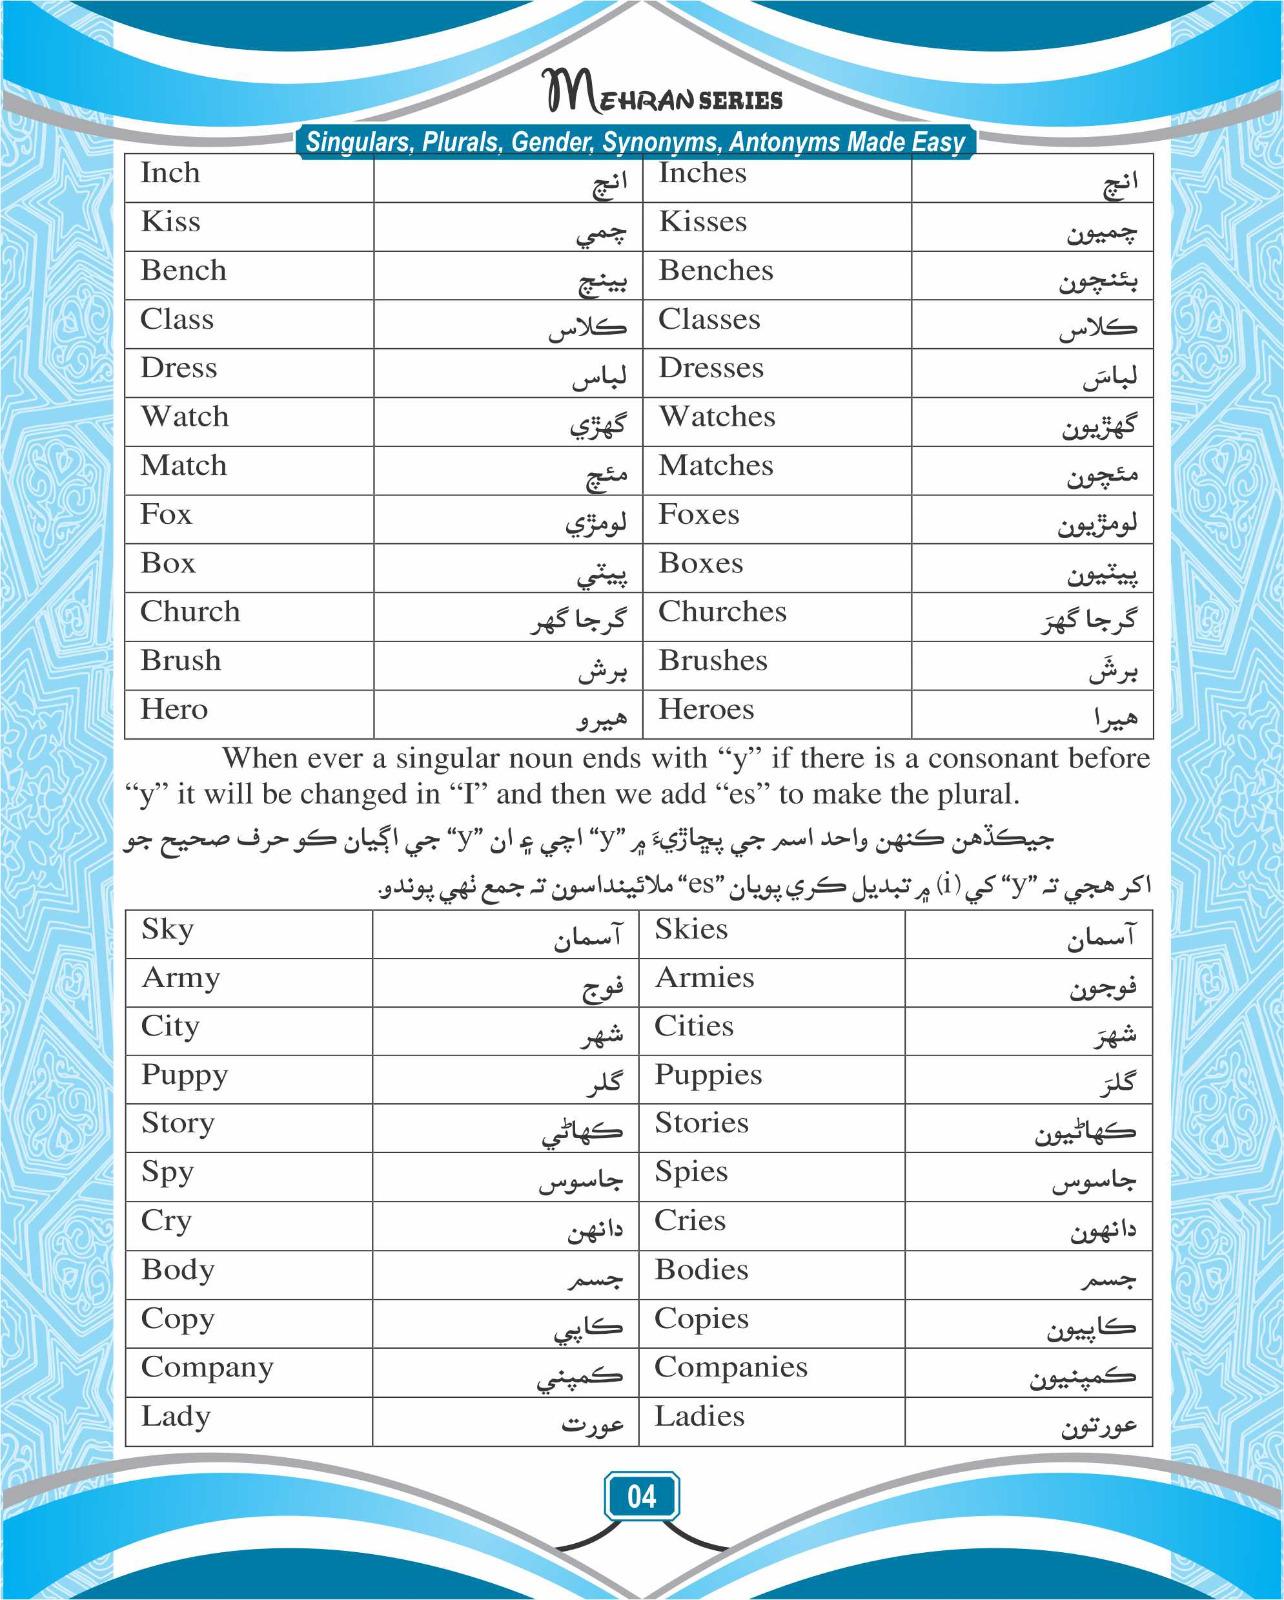 MEHRAN SERIES
Singulars, Plurals, Gender, Synonyms, Antonyms Made Easy
Inch انچ Inches انچ
Kiss چمي Kisses چميون
Bench بينچ Benches بئنچون
Class ڪلاس Classes ڪلاس
Dress لباس Dresses لباسَ
Watch گھڙي Watches گھڙيون
Match مئچ Matches مئچون
Fox لومڙي Foxes لومڙيون
Box پيٽي Boxes پيٽيون
Church گرجا گھر Churches گرجا گھرَ
Brush برش Brushes برشَ
Hero هيرو Heroes هيرا
When ever a singular noun ends with “y” if there is a consonant before
“y” it will be changed in “I” and then we add “es” to make the plural.
جيڪڏهن ڪنهن واحد اسم جي پڇاڙيءَ ۾ “y” اچي ۽ ان “y” جي اڳيان ڪو حرف صحيح جو
اکر هجي تہ “y” کي (i) ۾ تبديل ڪري پويان “es” ملائينداسون تہ جمع ٺهي پوندو.
Sky آسمان Skies آسمان
Army فوج Armies فوجون
City شهر Cities شهرَ
Puppy گلر Puppies گلرَ
Story ڪهاڻي Stories ڪهاڻيون
Spy جاسوس Spies جاسوس
Cry دانهن Cries دانهون
Body جسم Bodies جسم
Copy ڪاپي Copies ڪاپيون
Company ڪمپني Companies ڪمپنيون
Lady عورت Ladies عورتون
04